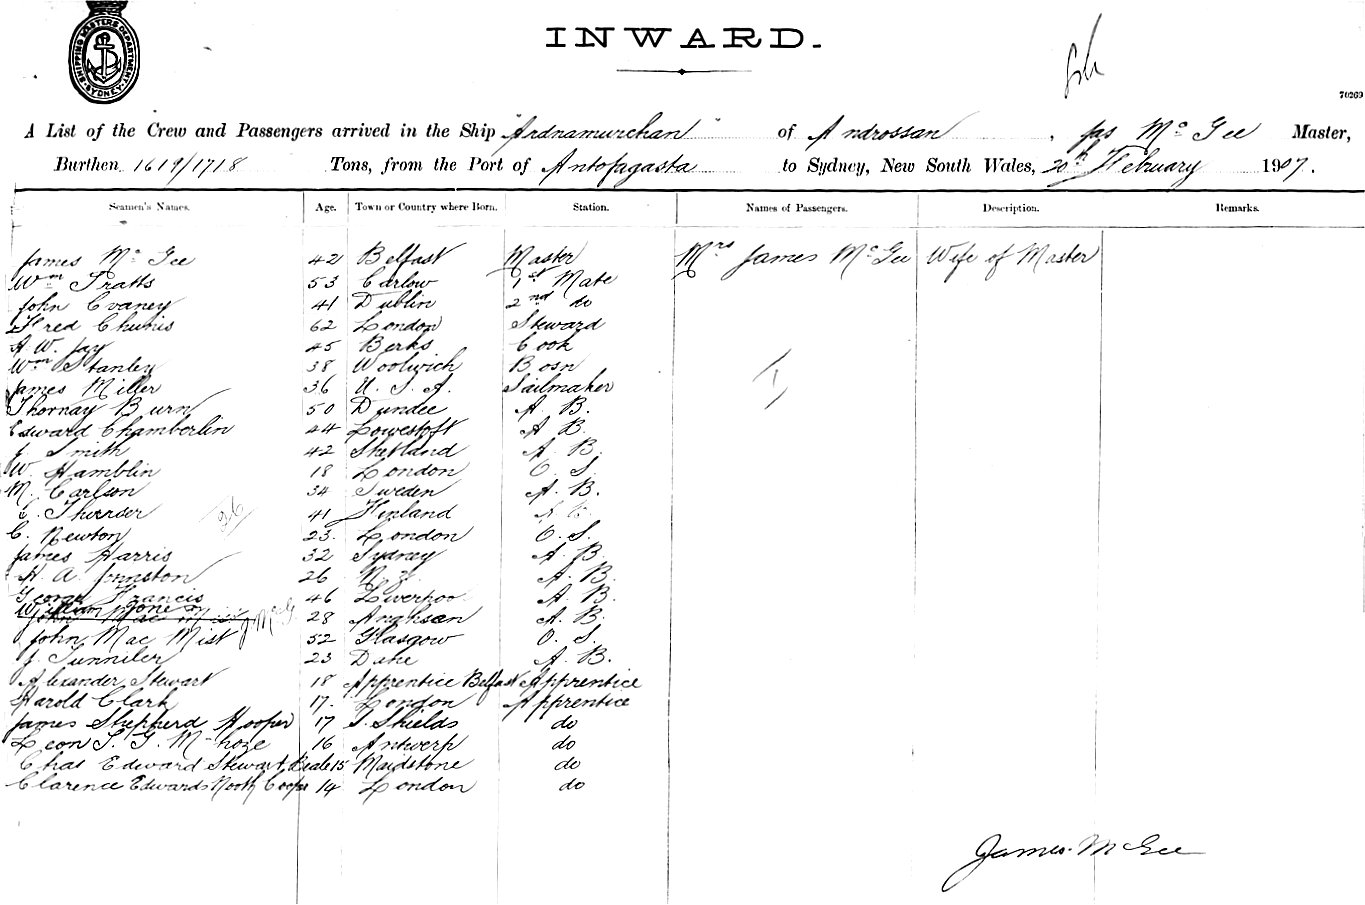 SHIPPING MASTERS DEPARTMENT SYDNEY
INWARD.
70269
A List of the Crew and Passengers arrived in the Ship "Ardnamurchan" of Androssan, Jas Mc Gee Master,
Burthen 1619/1718 Tons, from the Port of Antofagasta to Sydney, New South Wales, 20th February 1907.
Seamen's Names. Age. Town or Country where Born. Station. Names of Passengers. Description. Remarks.
James Mc Gee 42 Belfast Master Mrs James McGee Wife of Master
Wm Pratts 53 Carlow 1st Mate
John Evaney 41 Dublin 2nd do
Fred Chunis 62 London Steward
A. W. Jay 45 Berks Cook
Wm Stanley 38 Woolwich Bosn
James Miller 36 U. S. A. Sailmaker
Thornay Burn 50 Dundee A. B.
Edward Chamberlin 44 Lowestoft A B.
J. Smith 42 Shetland A. B.
W. Hamblin 18 London O. S.
M. Carlson 34 Sweden A. B.
26
41 Finland
C. Newton 23. London O. S.
James Harris 32 Sydney A. B.
H. A. Johnston 26 N. Z. A. B.
George Francis 46 Liverpoo A. B.
William Jones 28 A. B.
John Mac Mist J McG
John Mac Mist 52 Glasgow O. S.
J. Tunniler 23 A. B.
Alexander Stewart 18 Apprentice Belfast Apprentice
Harold Clark 17. London Apprentice
James Shepherd Hooper 17 S. Shields do
Leon S. G. 16 Antwerp do
Chas Edward Stewart Beale 15 Maidstone do
Clarence Edwards North Cooper 14 London do
James McGee